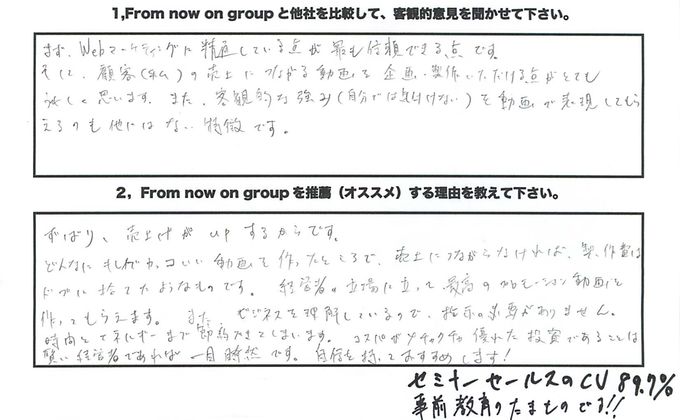 1,From now on groupと他社を比較して、客観的意見を聞かせて下さい。
まず、Webマーケティングに精通している点が最も信頼できる点です。
そして、顧客(私)の売上につながる動画を企画・製作いただける点がとても
うれしく思います。また、客観的な強み(自分では気付けない)を動画で表現してもら
えるのも他にはない特徴です。
2, From now on groupを推薦(オススメ)する理由を教えて下さい。
ずばり、売上げがupするからです。
どんなにキレイでカッコいい動画を作ったところで、売上につながらなければ、製作費は
ドブに捨てたようなものです。経営者の立場に立って最高のプロモーション動画を
作ってもらえます。また、ビジネスを理解しているので、指示の必要がありません。
時間とエネルギーまで節約できてしまいます。コスパがメチャクチャ優れた投資であることは
賢い経営者であれば一目瞭然です。自信を持っておすすめします!
セミナーセールスのCV 89.7%
事前教育のたまものです!!